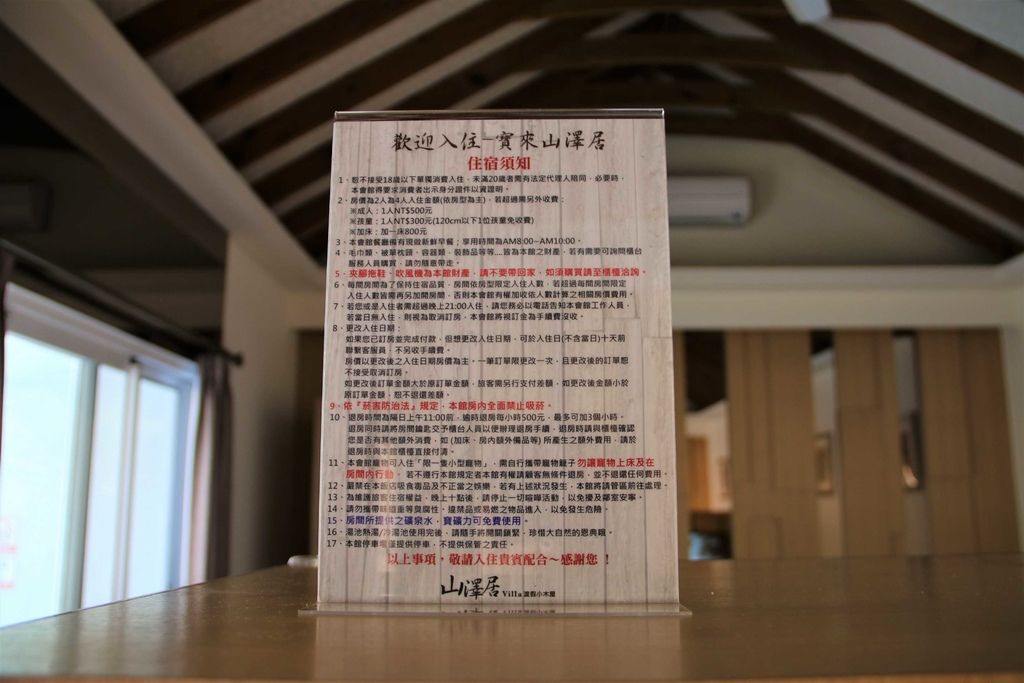 歡迎入住-寶來山澤居
住宿須知
1、恕不接受18歲以下單獨消費入住，未滿20歲者需有法定代理人陪同，必要時，
本會館得要求消費者出示身分證件以資證明。
2、房價為2人為4人入住金額(依房型為主)，若超過需另外收費：
※成人：1人NT$500元
※孩童：1人NT$300元(120cm以下1位孩童免收費)
※加床：加一床800元
3、本會館餐廳備有現做新鮮早餐；享用時間為AM8:00~AM10:00。
4、毛巾類、被單枕頭、容器類、裝飾品等等....皆為本館之財產，若有需要可詢問櫃台
服務人員購買，請勿隨意帶走。
5、夾腳拖鞋、吹風機為本館財產，請不要帶回家，如須購買請至櫃檯洽詢。
6、每間房間為了保持住宿品質，房間依房型限定入住人數，若超過每間房間限定
入住人數皆需再另加開房間，否則本會館有權加收依人數計算之相關房價費用。
7、若您或是入住者需超過晚上21:00入住，請您務必以電話告知本會館工作人員，
若當日無入住，則視為取消訂房，本會館將視訂金為手續費沒收。
8、更改入住日期：
如果您已訂房並完成付款，但想更改入住日期，可於入住日(不含當日)十天前
聯繫客服員，不另收手續費。
房價以更改後之入住日期房價為主。一筆訂單限更改一次，且更改後的訂單恕
不接受取消訂房。
如更改後訂單金額大於原訂單金額，旅客需另行支付差額，如更改後金額小於
原訂單金額，恕不退還差額。
9、依『菸害防治法』規定，本館房內全面禁止吸菸。
10、退房時間為隔日上午11:00前，逾時退房每小時500元，最多可加3個小時。
退房同時請將房間鑰匙交予櫃台人員以便辦理退房手續，退房時請與櫃檯確認
您是否有其他額外消費，如 (加床、房內額外備品等) 所產生之額外費用，請於
退房時與本館櫃檯直接付清。
11、本會館寵物可入住「限一隻小型寵物」，需自行攜帶寵物籠子 勿讓寵物上床及在
房間內行動。若不遵行本館規定者本館有權請顧客無條件退房，並不退還任何費用。
12、嚴禁在本飯店吸食毒品及不正當之娛樂，若有上述狀況發生，本館將請管區前往處理。
13、為維護旅客住宿權益，晚上十點後，請停止一切喧嘩活動，以免擾及鄰室安寧。
14、請勿攜帶味道重等臭腐性，違禁品或易燃之物品進入，以免發生危險。
15、房間所提供之礦泉水，寶礦力可免費使用。
16、湯池熱湯/冷湯池使用完後，請隨手將開關鎖緊，珍惜大自然的恩典哦。
17、本館停車場僅提供停車，不提供保管之責任。
以上事項，敬請入住貴賓配合～感謝您！
山澤居 Villa渡假小木屋